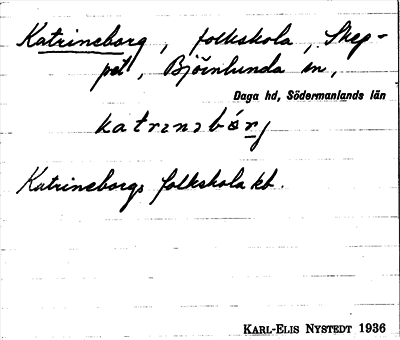 Katrineborg, folkskola, Skep-
pet, Björnlunda sn,
Daga hd, Södermanlands län
katrɩnəbórj
Katrineborgs folkskola kb.
KARL-ELIS NYSTEDT 1936